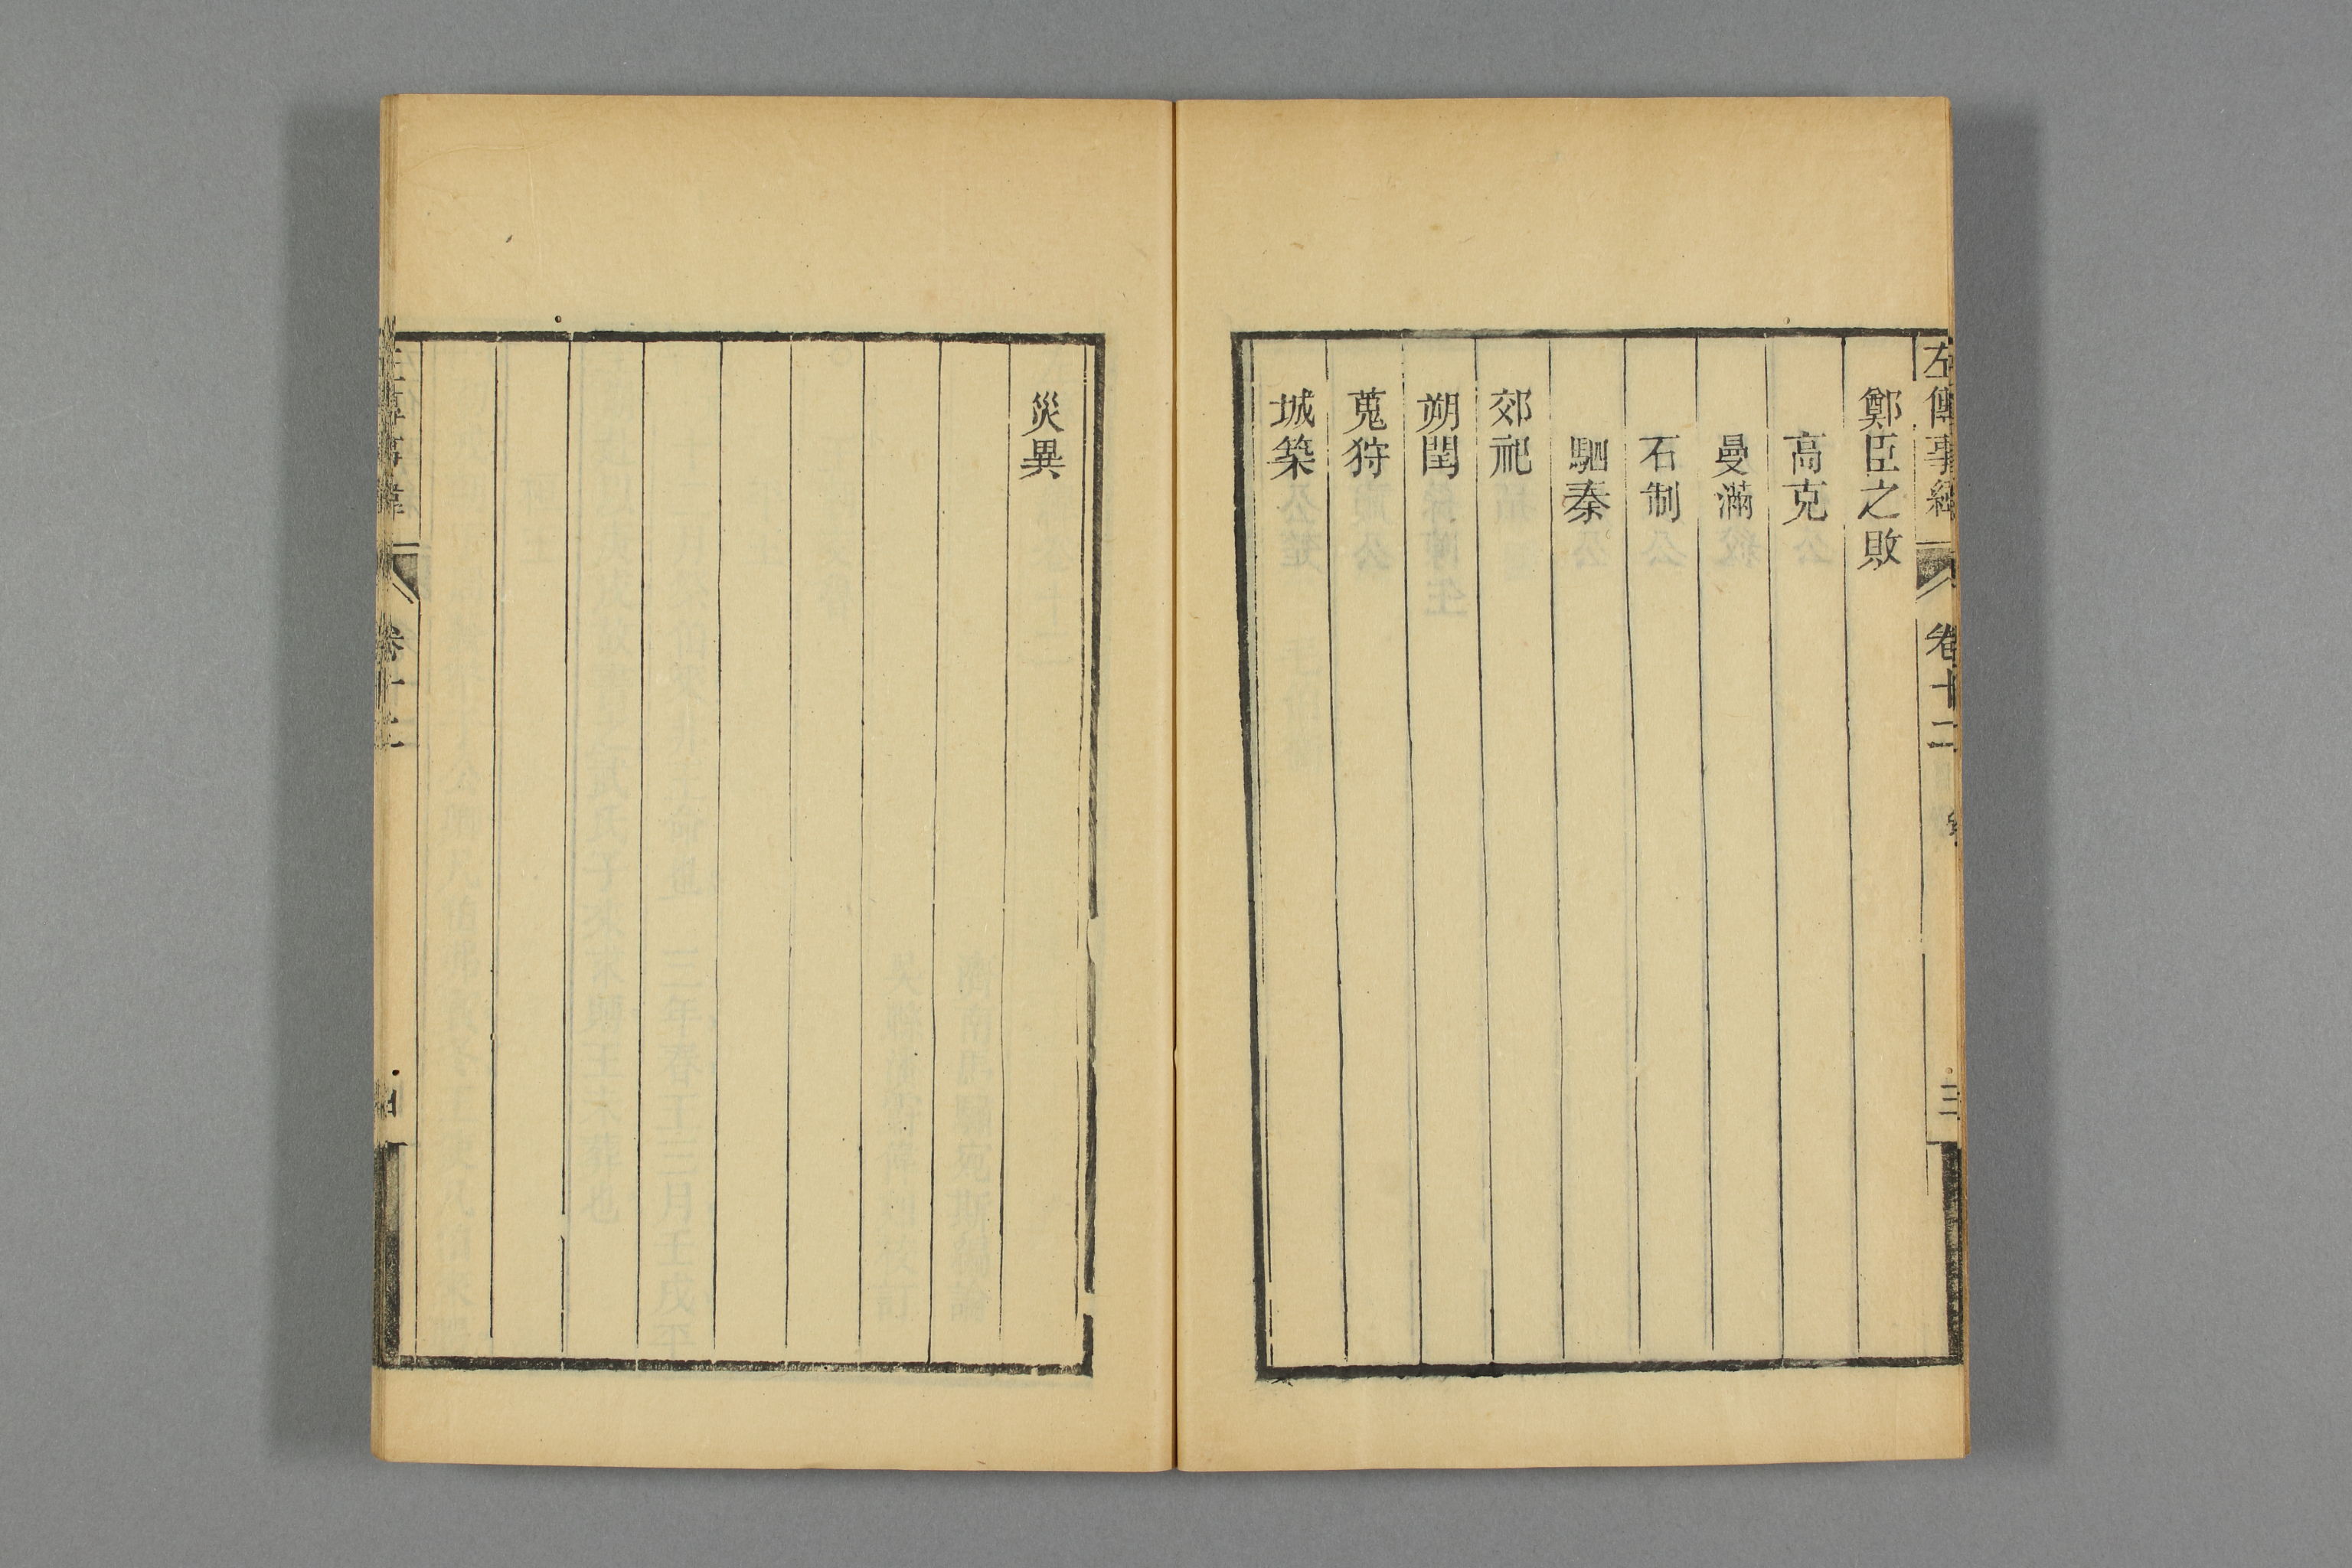 左傳事緯
卷十二
三
鄭臣之敗
高克
曼滿
石制
駟秦
郊祀
朔閏
蒐狩
城築
災異
左傳事緯
卷十二
四